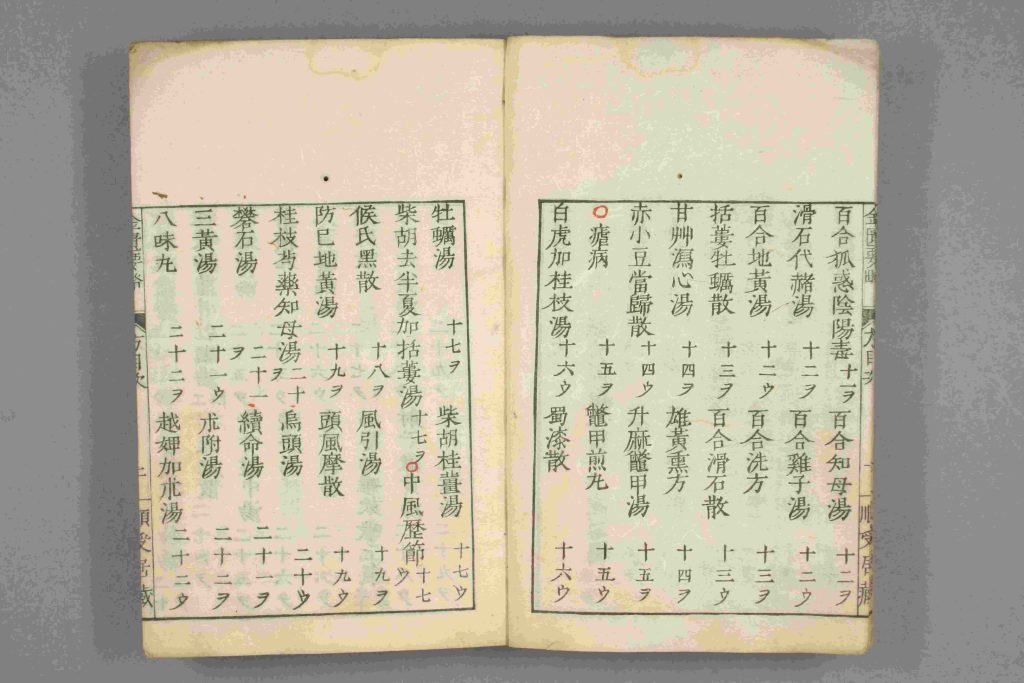 百合狐惑陰陽毒 十一ヲ 百合知母湯 十二ヲ
滑石代赭湯 十二ヲ 百合雞子湯 十二ウ
百合地黃湯 十二ウ 百合洗方 十三ヲ
括蔞牡蠣散 十三ヲ 百合滑石散 十三ウ
甘艸瀉心湯 十四ヲ 雄黃熏方 十四ウ
赤小豆當歸散 十四ウ 升麻鼈甲湯 十五ヲ
瘧病 十五ヲ 鼈甲煎丸 十五ウ
白虎加桂枝湯 十六ウ 蜀漆散 十六ウ
牡蠣湯 十七ヲ 柴胡桂薑湯 十七ウ
柴胡去半夏加括蔞湯 十七ヲ 中風歷節 十七ウ
候氏黑散 十八ヲ 風引湯 十九ヲ
防己地黃湯 十九ヲ 頭風摩散 十九ウ
桂枝芍藥知母湯 二十ヲ 烏頭湯 二十ウ
礬石湯 二十一ヲ 續命湯 二十一ヲ
三黃湯 二十一ウ 朮附湯 二十二ヲ
八味丸 二十二ヲ 越婢加朮湯 二十二ウ
金匱要略 方目次 二 順受居藏